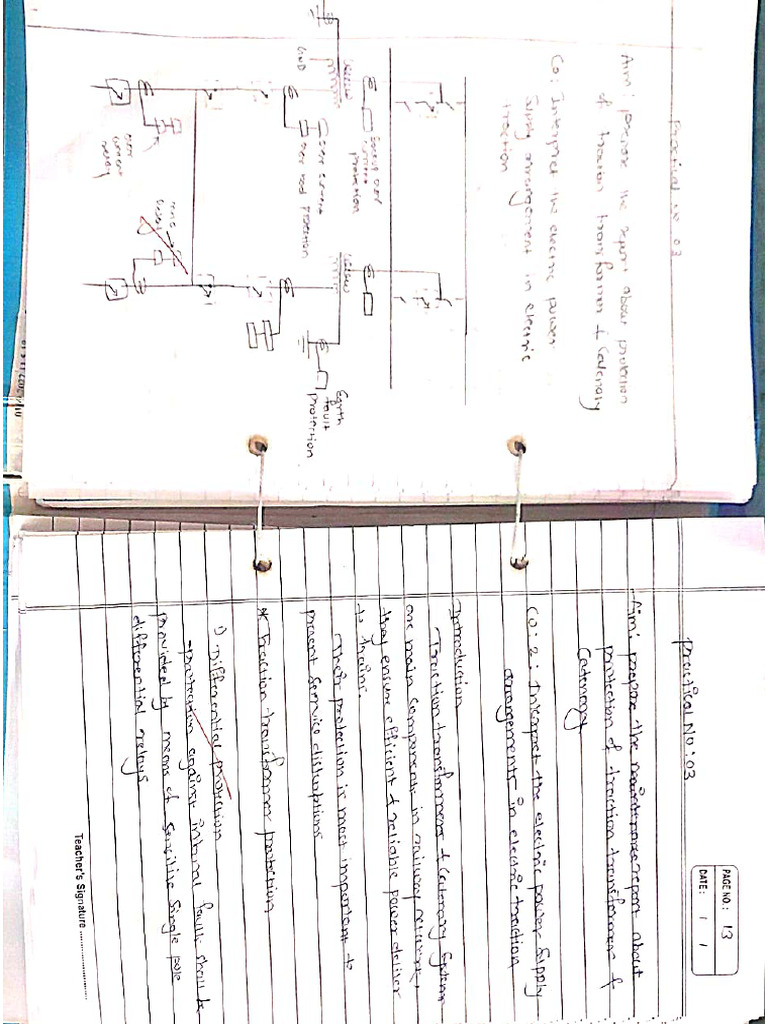 Practical No 03
Aim: prepare the report about protection
of traction transformer & Catenary
Co: Interpret the electric power
supply arrangement in electric
traction
Backup over
current
protection
GND
Over current
Over load Protection
over
current
relay
Earth
fault
protection
PAGE NO.: 13
DATE: / /
Practical No: 03
Aim: prepare the maintenance report about
protection of traction transformer &
Catenary
CO: 2: Interpret the electric power supply
arrangements in electric traction
Introduction
Traction transformer & Catenary System
are main components in railway network,
they ensure efficient & reliable power deliver
to trains.
Their protection is most important to
prevent service distruptions
* Traction transformer protection
1) Differential protection
- protection against internal fault shall be
provided by means of sensitive single pole
differential relays
Teacher's Signature